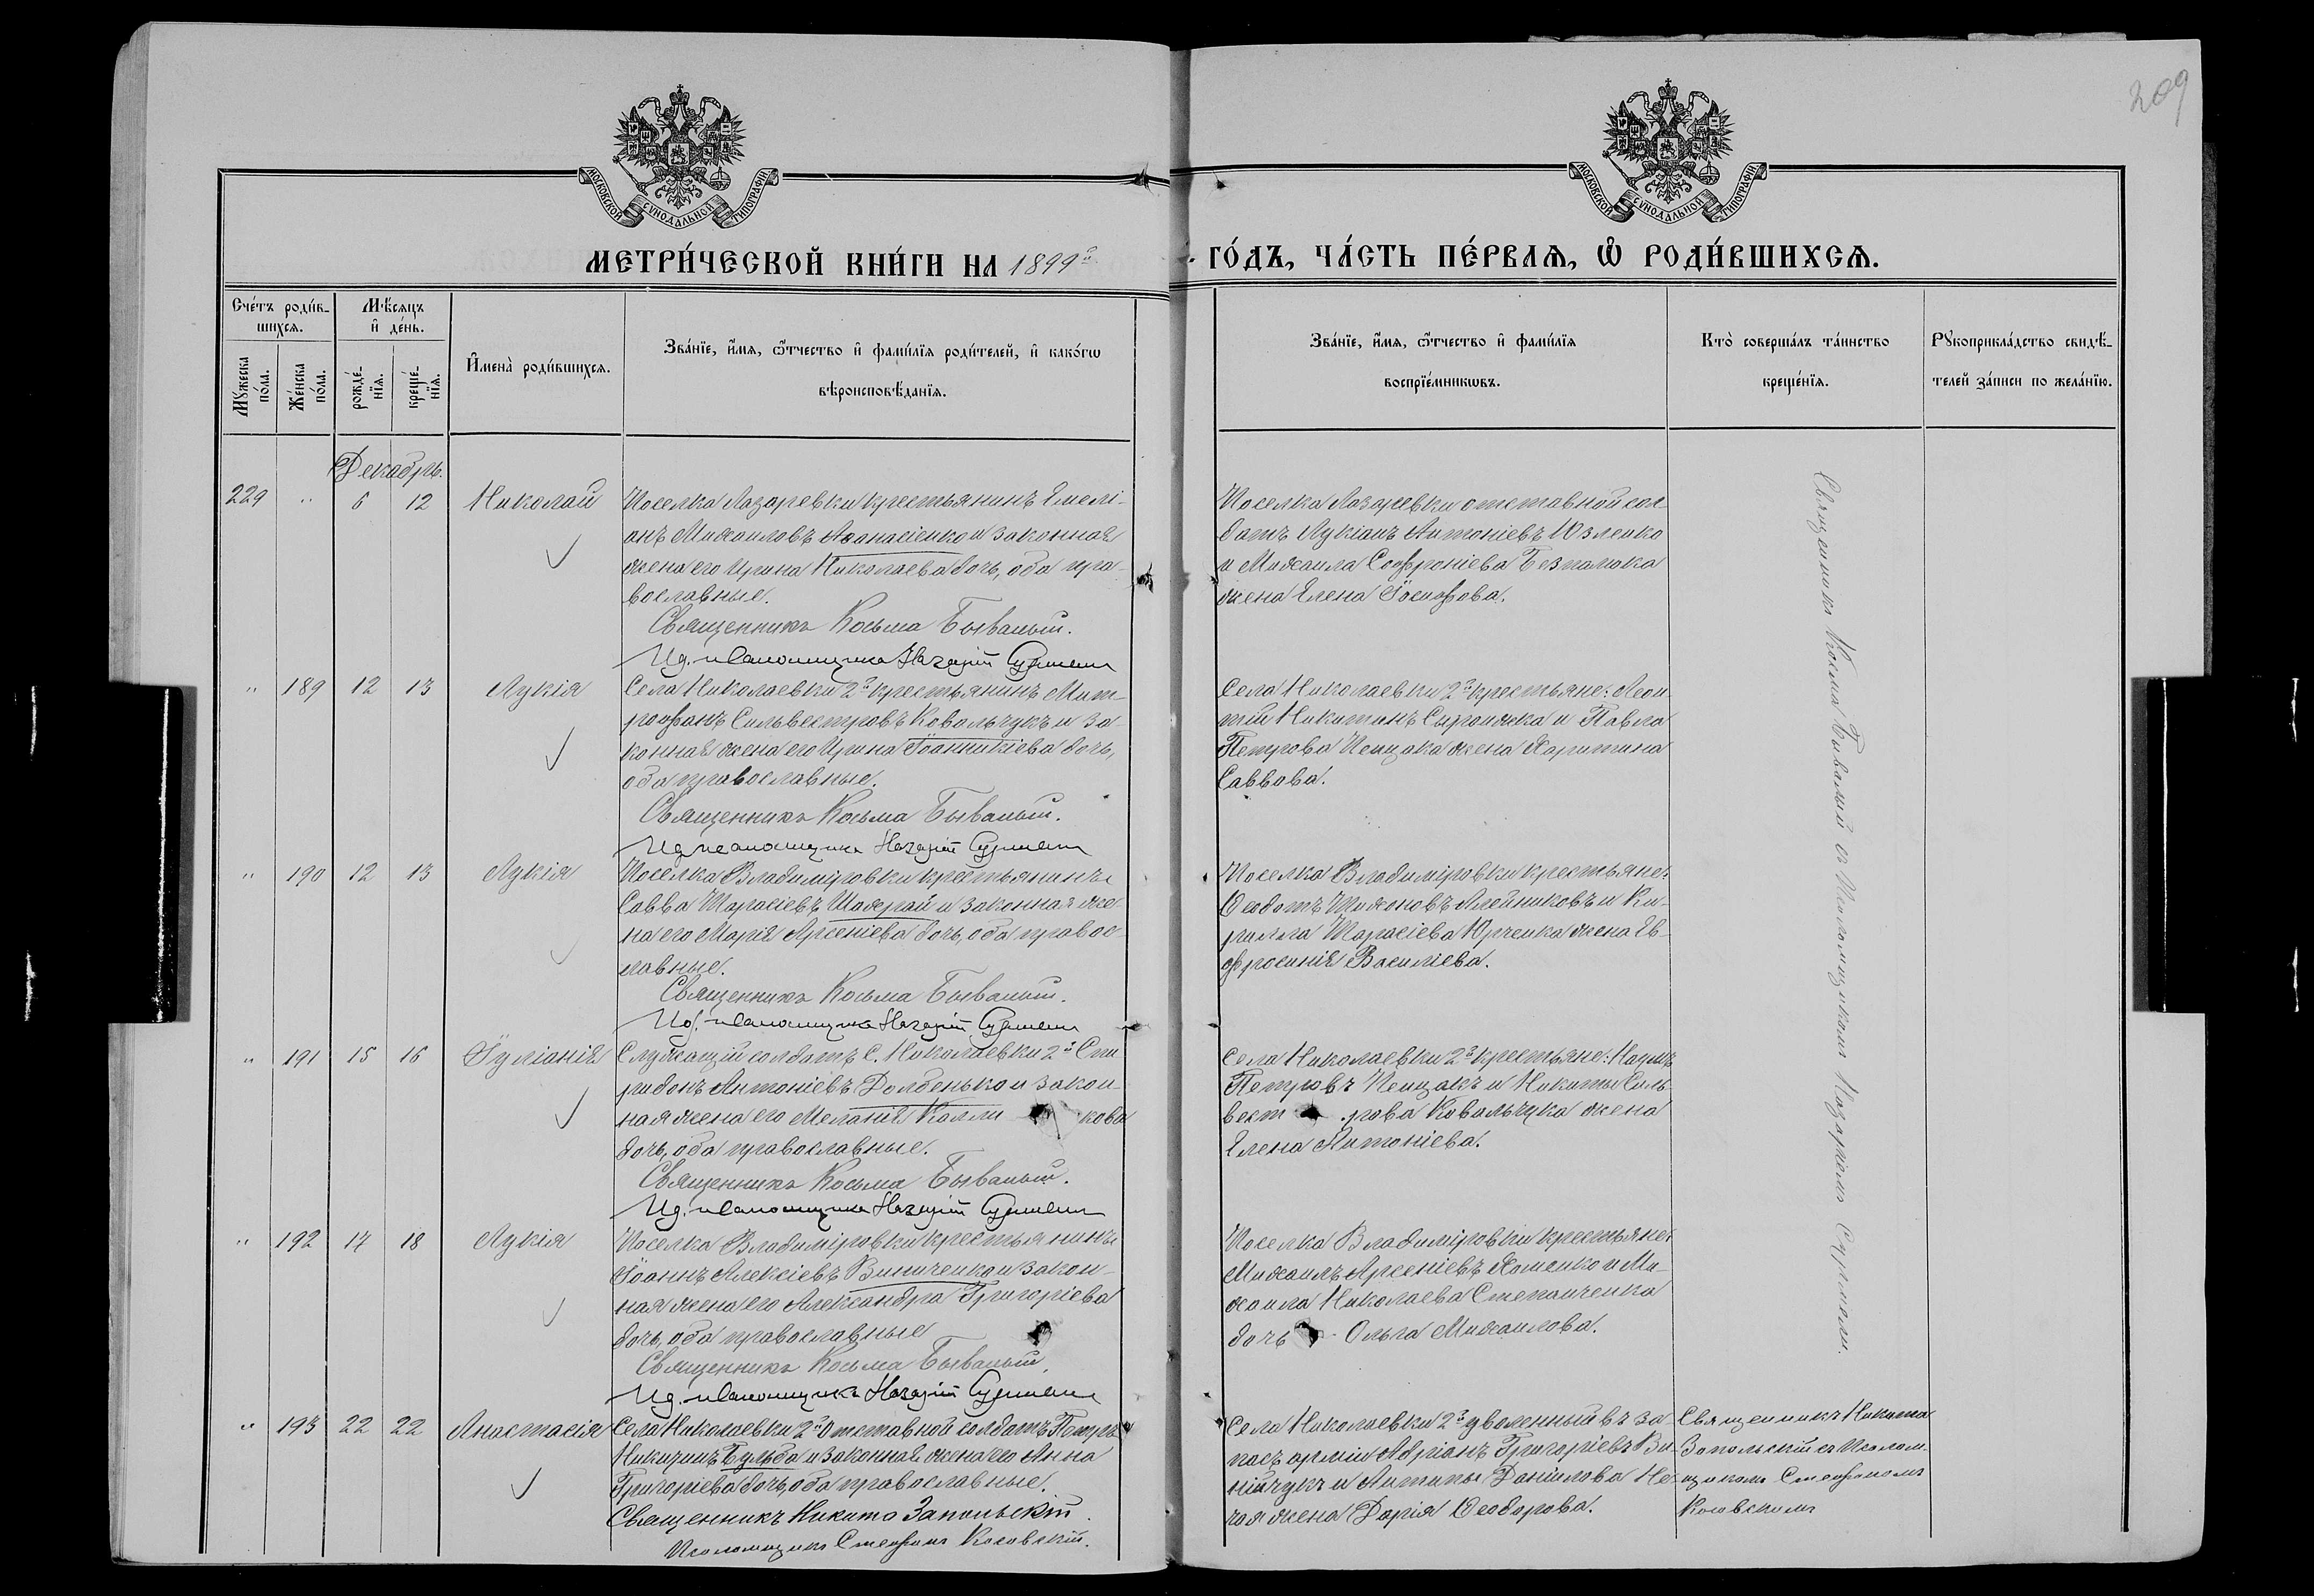 209
МОСКОВСКОЙ СѴНОДАЛЬНОЙ ТИПОГРАФІИ
МОСКОВСКОЙ СѴНОДАЛЬНОЙ ТИПОГРАФІИ
МЕТРИ́ЧЕСКОЙ КНИ́ГИ НА 1899й
ГО́ДЪ, ЧА́СТЬ ПЕ́РВАѦ, Ѽ РОДИ́ВШИХСѦ.
Сче́тъ роди́в-
шихсѧ.
Мꙋжеска
по́ла.
Же́нска
по́ла.
Мѣ́сѧцъ
и҆ де́нь.
рожде́-
нїѧ.
креще́-
нїѧ.
И҆мена̀ роди́вшихсѧ.
Зва́нїе, и҆́мѧ, ѻ҆́тчество и҆ фами́лїѧ роди́телей, и҆ како́гѡ
вѣроисповѣ́данїѧ.
Зва́нїе, и҆́мѧ, ѻ҆́тчество и҆ фами́лїѧ
воспрїе́мникѡвъ.
Кто̀ соверша́лъ та́инство
креще́нїѧ.
Рꙋкоприкла́дство свидѣ́-
телей за́писи по жела́нїю.
Декабрь.
229 " 6 12 Николай
Поселка Лазаревки крестьянинъ Емелі-
анъ Михаиловъ Аѳонасіенко и законная
жена его Ирина Николаева дочь, оба пра-
вославные.
Священникъ Косьма Бывалый.
Ид. псаломщика Назарій Сурмели
Поселка Лазаревки отставной сол-
датъ Лукіанъ Антоніевъ Юзленко
и Михаила Софроніева Безпалюка
жена Елена Іосифова.
Священникъ Косма Бывалый съ Псаломщикомъ Назаріемъ Сурмели.
" 189 12 13 Лукія
Села Николаевки 2й крестьянинъ Мит-
рофанъ Сильвестровъ Ковальчукъ и за-
конная жена его Ирина Іоанникіева дочь,
оба православные.
Священникъ Косьма Бывалый.
Ид. псаломщика Назарій Сурмели
Села Николаевки 2й крестьяне: Леон-
тій Никитинъ Сыроижка и Павла
Петрова Пенцака жена Харитина
Саввова.
" 190 12 13 Лукія
Поселка Владиміровки крестьянинъ
Савва Тарасіевъ Шахрай и законная же-
на его Марія Арсеніева дочь, оба правос-
лавные.
Священникъ Косьма Бывалый.
Ид. псаломщика Назарій Сурмели
Поселка Владиміровки крестьяне:
Ѳеодотъ Тихоновъ Алейниковъ и Ки-
рилла Тарасіева Юрченка жена Ев-
фросинія Василіева.
" 191 15 16 Іуліанія
Служащій солдатъ с. Николаевки 2й Спи-
ридонъ Антоніевъ Долбенько и закон-
ная жена его Меланія Калли кова
дочь, оба православные.
Священникъ Косьма Бывалый.
Ид. псаломщика Назарій Сурмели
Села Николаевки 2й крестьяне: Наумъ
Петровъ Пенцакъ и Никиты Силь-
вест рова Ковальчука жена
Елена Антоніева.
" 192 17 18 Лукія
Поселка Владиміровки крестьянинъ
Іоаннъ Алексіевъ Винниченко и закон-
ная жена его Александра Григоріева
дочь, оба православные
Священникъ Косьма Бывалый.
Ид. псаломщика Назарій Сурмели
Поселка Владиміровки крестьяне:
Михаилъ Арсеніевъ Хоменко и Ми-
хаила Николаева Степанченка
дочь Ольга Михаилова.
" 193 22 22 Анастасія
Села Николаевки 2й отставной солдатъ Петръ
Никитинъ Бульба и законная жена его Анна
Григоріева дочь, оба православные.
Священникъ Никита Запольскій.
Псаломщикъ Стефанъ Косовскій.
Села Николаевки 2й уволенный въ за-
пасъ арміи Адріанъ Григоріевъ Ви-
нійчукъ и Антипы Даніилова Не-
чая жена Дарія Ѳеодорова.
Священникъ Никита
Запольскій съ Псалом-
щикомъ Стефаномъ
Косовскимъ